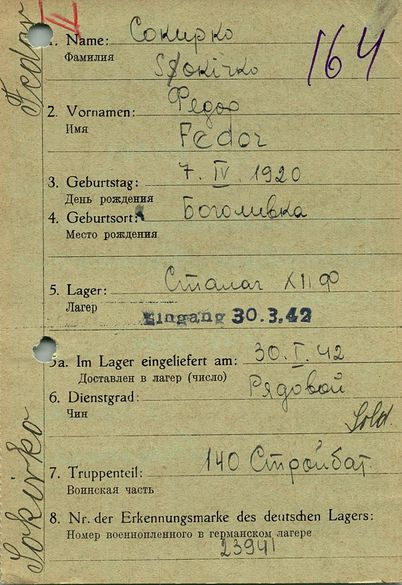 Fedor
IV
1. Name: Сокирко
Фамилия
Sokirko
164
2. Vornamen: Федор
Имя
Fedor
3. Geburtstag: 7. IV. 1920
День рождения
4. Geburtsort: Боголивка
Место рождения
5. Lager: Сталаг XII Ф
Лагер
Eingang 30.3.42
5a. Im Lager eingeliefert am: 30. I. 42
Доставлен в лагер (число)
6. Dienstgrad: Рядовой
Чин
Sold.
7. Truppenteil: 140 Стройбат
Воинская часть
8. Nr. der Erkennungsmarke des deutschen Lagers:
Номер военнопленного в германском лагере
23941
Sokirko